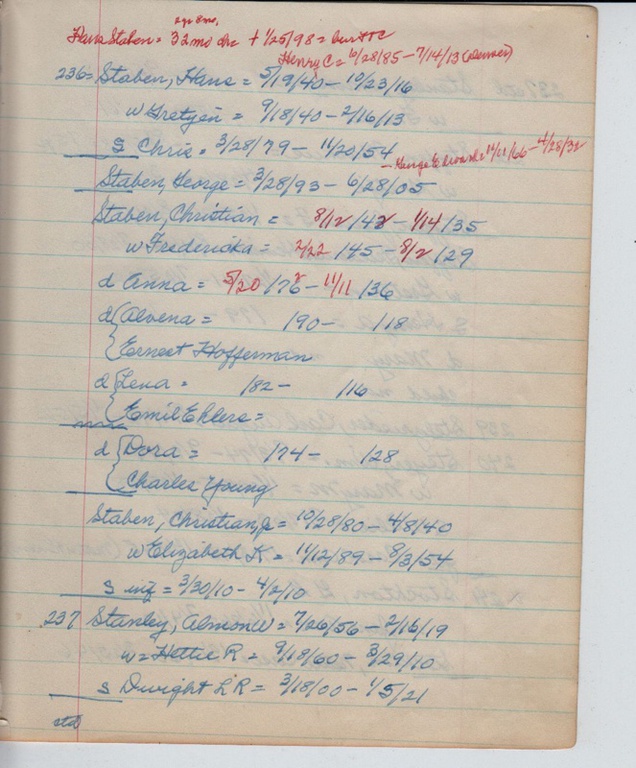 age 8 mo.
Hans Staben = 32 mo dr = + 1/25/98 = bur
Henry C = 10/28/85 - 7/14/13 (Denver)
236= Staben, Hans = 5/19/40 - 10/23/16
w Gretyen = 9/18/40 - 2/16/13
S Chris = 3/28/79 - 11/20/54
- George Edward = 11/11/66 - 4/28/32
Staben, George = 3/28/93 - 6/28/05
Staben, Christian = 8/12/42 - 1/14/35
w Fredericka = 2/22/45 - 8/2/29
d Anna = 5/20/78 - 11/11/36
d { Alvena = /90 - /18
{ Ernest Hofferman
d { Lena = /82 - /16
{ Emil Ehlers =
d { Dora = /74 - /28
{ Charles Young
Staben, Christian, Jr = 10/28/80 - 4/8/40
w Elizabeth K = 11/12/89 - 8/3/54
S inf = 3/30/10 - 4/2/10
237 Stanley, Almon W = 7/26/56 - 2/15/19
w = Hettie R = 9/18/60 - 3/29/10
S Dwight L R = 3/18/00 - 1/5/21